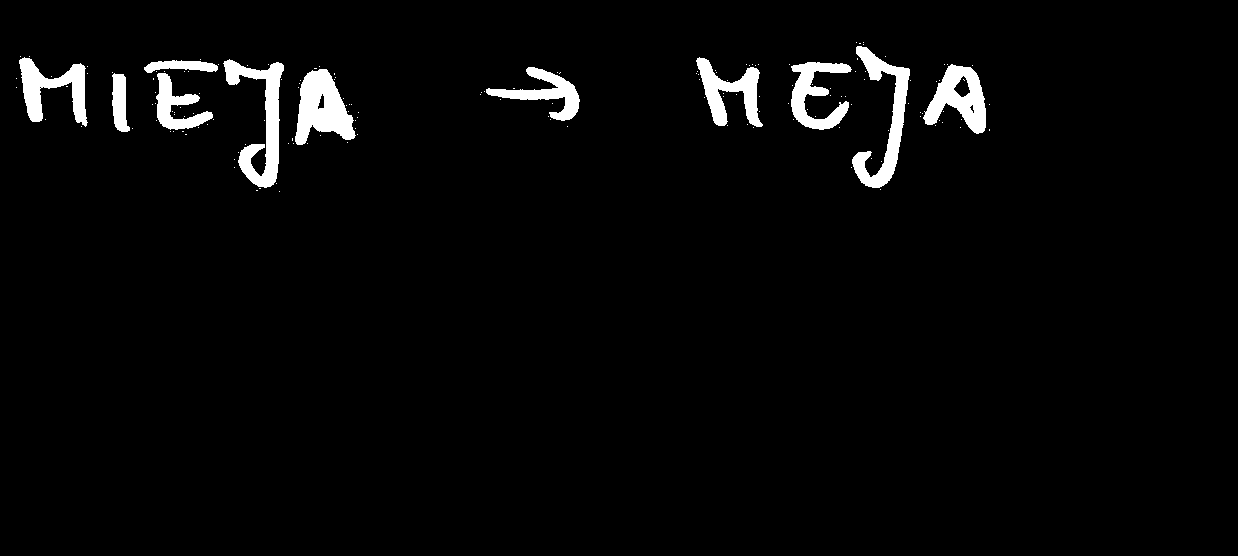 MIEJA → MEJA